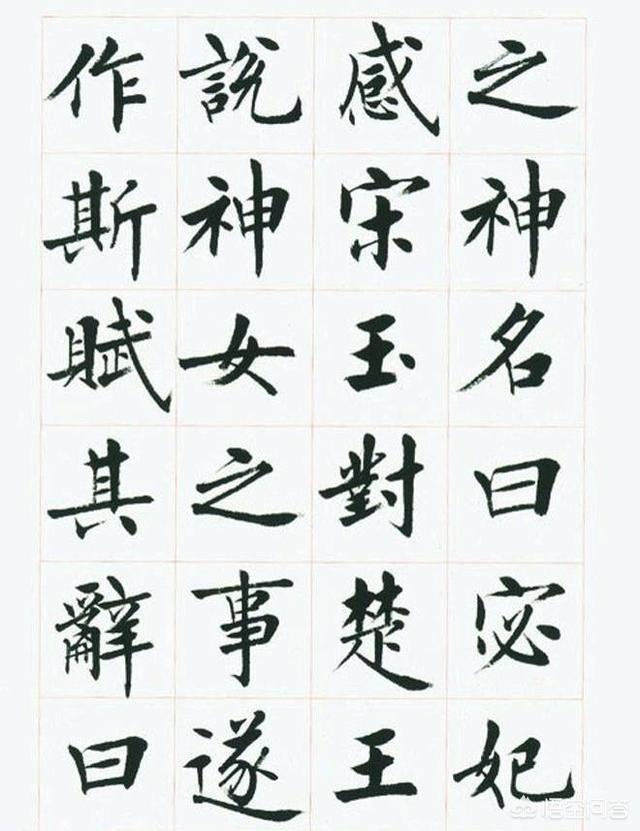 之神名曰宓妃
感宋玉對楚王
說神女之事遂
作斯賦其辭曰
悟空问答